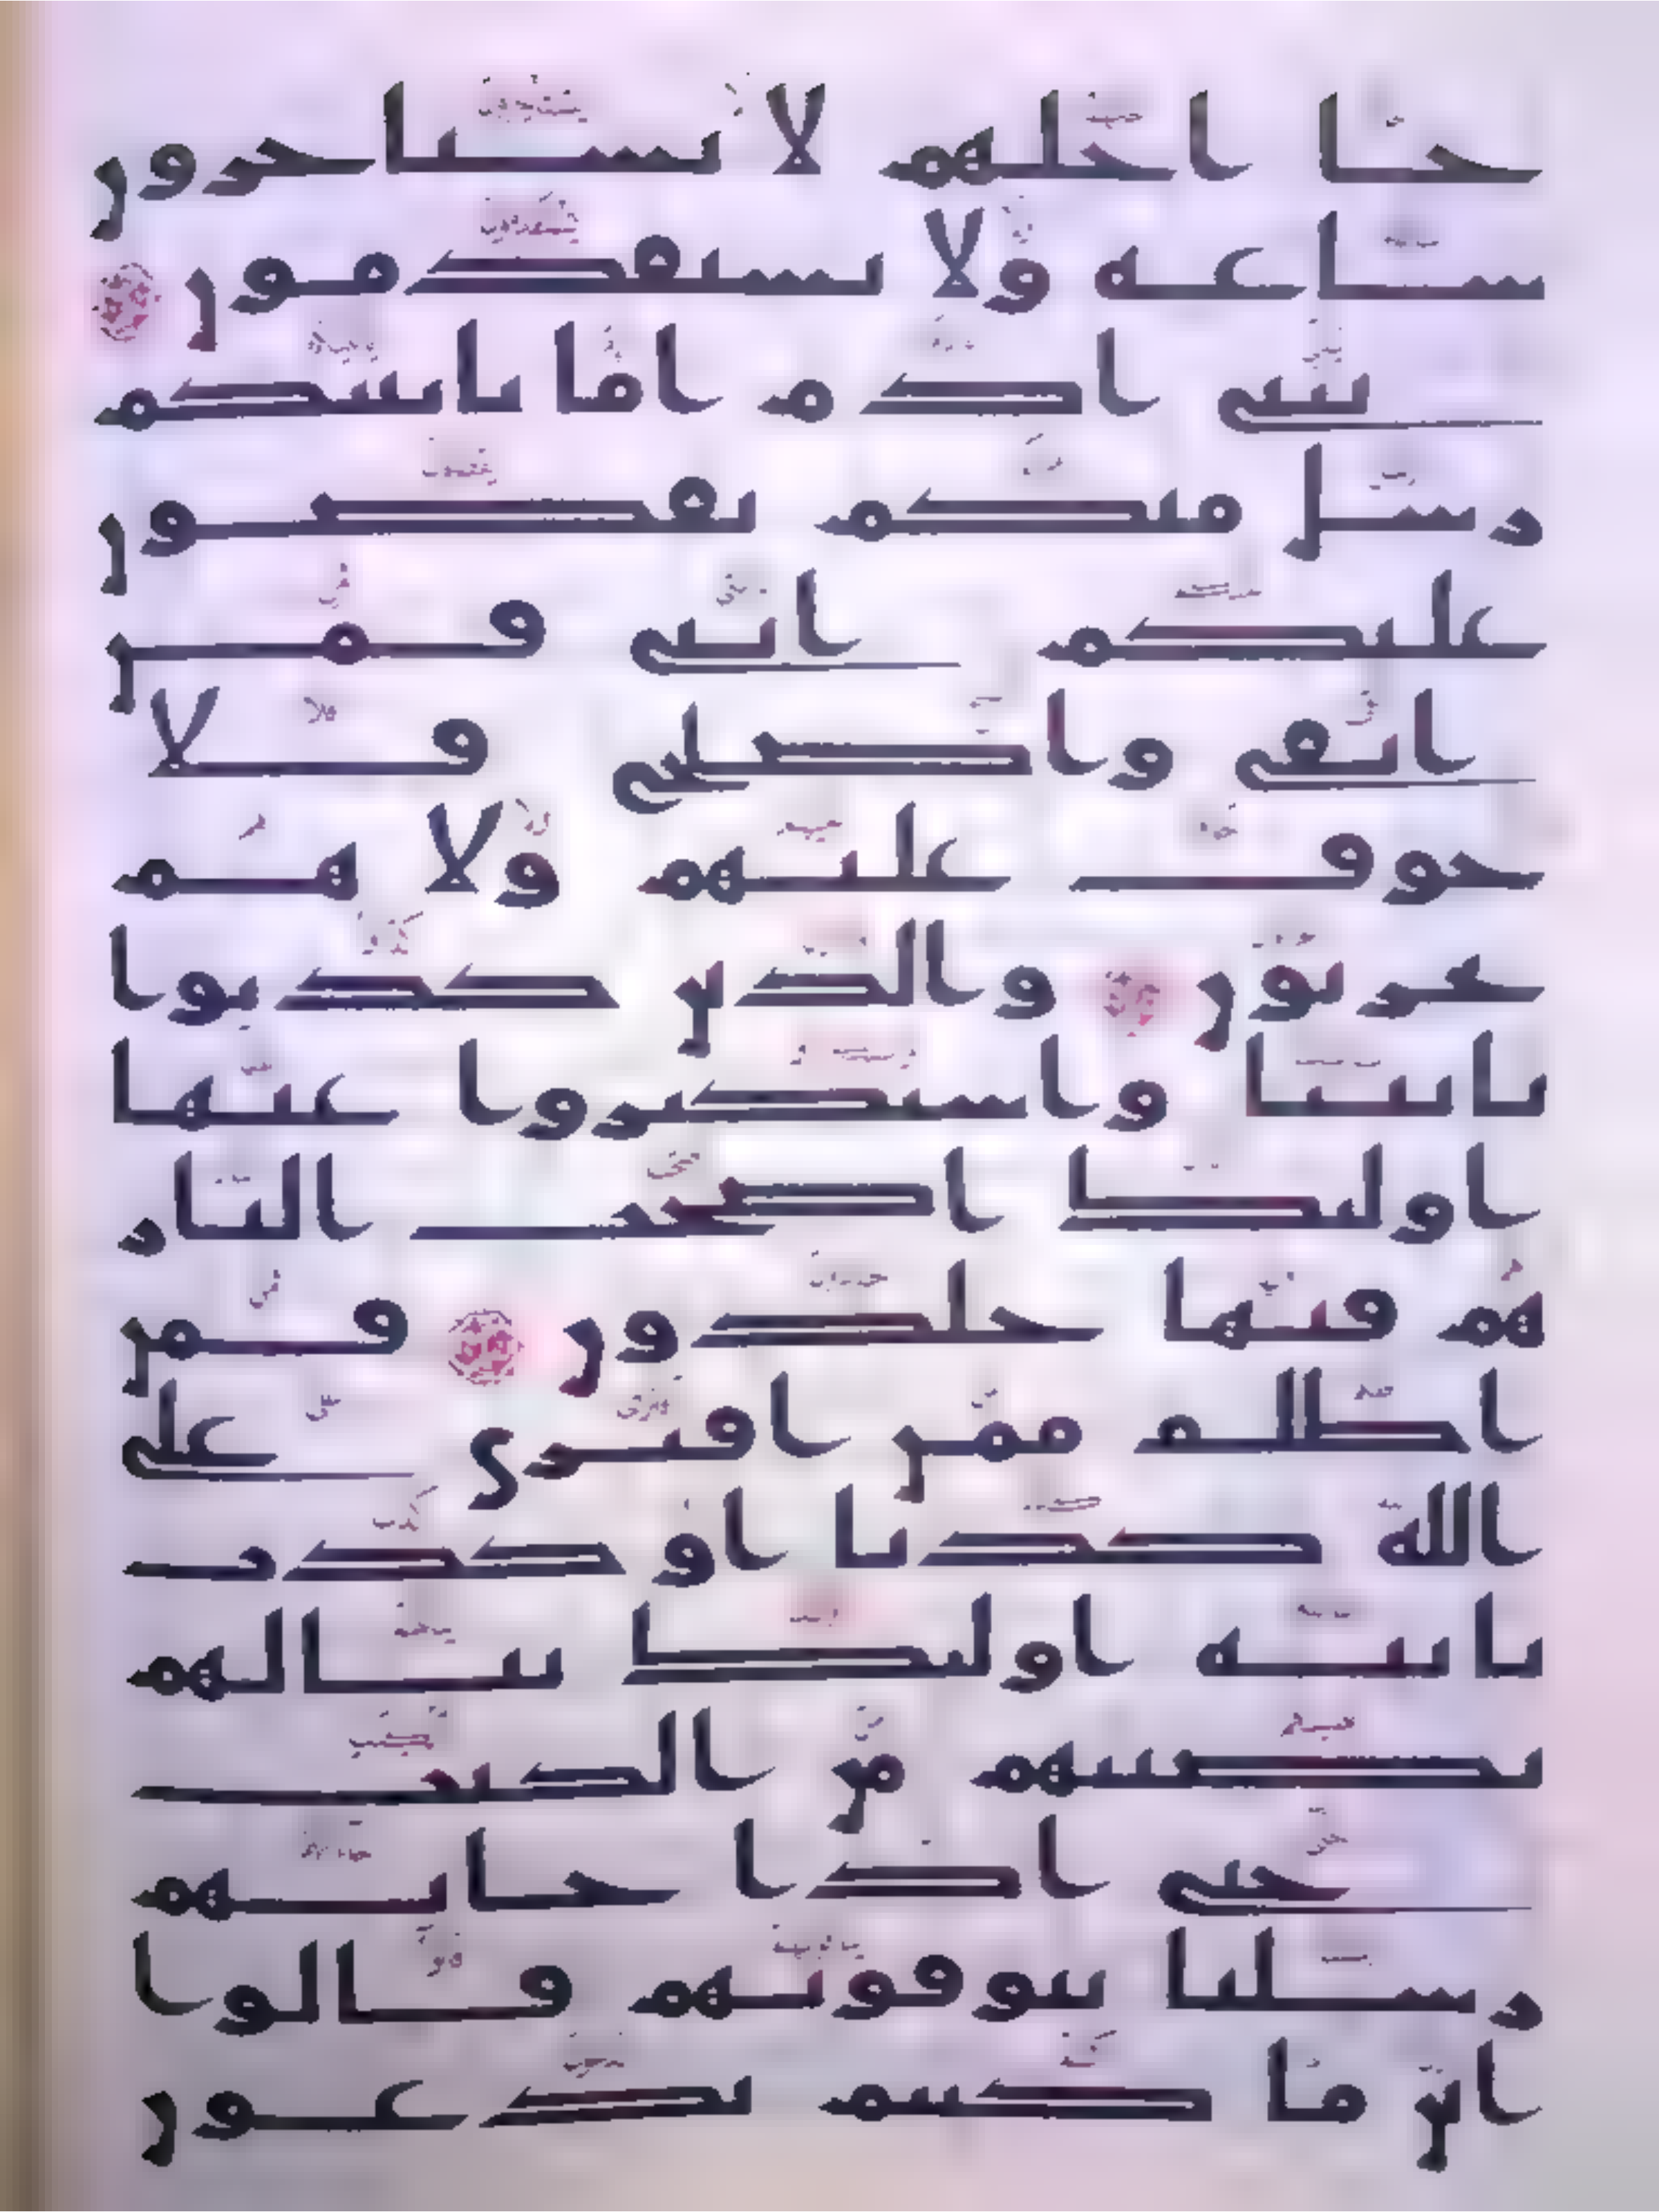 جا اجلهم لا يستاخرون
ساعة ولا يستقدمون
يبنى ادم اما ياتينكم
رسل منكم يقصون
عليكم ايتى فمن
اتقى واصلح فلا
خوف عليهم ولا هم
يحزنون والذين كذبوا
بايتنا واستكبروا عنها
اولئك اصحب النار
هم فيها خلدون فمن
اظلم ممن افترى على
الله كذبا او كذب
بايته اولئك ينالهم
نصيبهم من الكتب
حتى اذا جاتهم
رسلنا يتوفونهم قالوا
اين ما كنتم تدعون